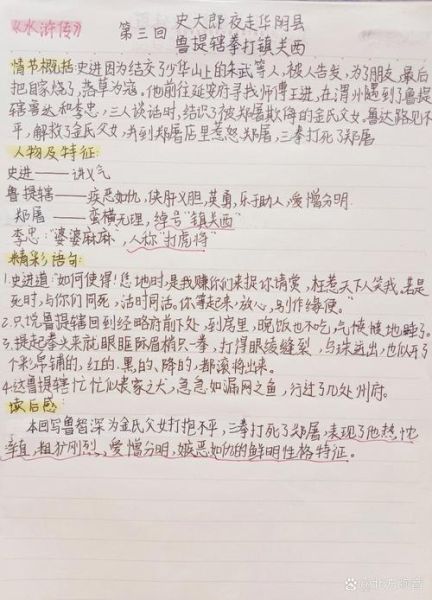 《水浒传》
第三回 史大郎夜走华阴县
鲁提辖拳打镇关西
情节概括:史进因为结交了少华山上的朱武等人,被人告发,为了朋友,最后
把自家烧了,落草为寇。他前往延安府寻找师傅王进,在渭州遇到了鲁提
辖鲁达和李忠,三人谈话时,结识了被郑屠欺侮的金氏父女,鲁达路见不
平,解救了金氏父女,并到郑屠店里惹怒郑屠,三拳打死了郑屠
人物及特征:
史进——讲义气
鲁提辖——疾恶如仇,侠肝义胆,英勇,乐于助人,爱憎分明.
郑屠——蛮横无理,绰号"镇关西"
李忠:"婆婆麻麻,人称"打虎将"
精彩语句:
1.史进道:"如何使得!恁地时,是我赚你们来捉你请赏,枉惹天下人笑我.若是
死时,与你们同死,活时同活。你等起来,放心,别作缘便。"
2.只说鲁提辖回到经略府前下处,到房里,晚饭也不吃,气愤愤地睡了。
3.提起拳头来就眼眶际眉梢只一拳,打得眼棱缝裂,乌珠迸出,也似开了
个彩帛铺的,红的.黑的、降的,都滚将出来。
4.这鲁提辖忙忙似丧家之犬,急急如漏网之鱼,行过了几处州府。
读后感:
本回写鲁智深为金氏父女打抱不平,三拳打死了郑屠,表现了他热忱
率直,粗犷刚烈,爱憎分明,嫉恶如仇的鲜明性格特征。